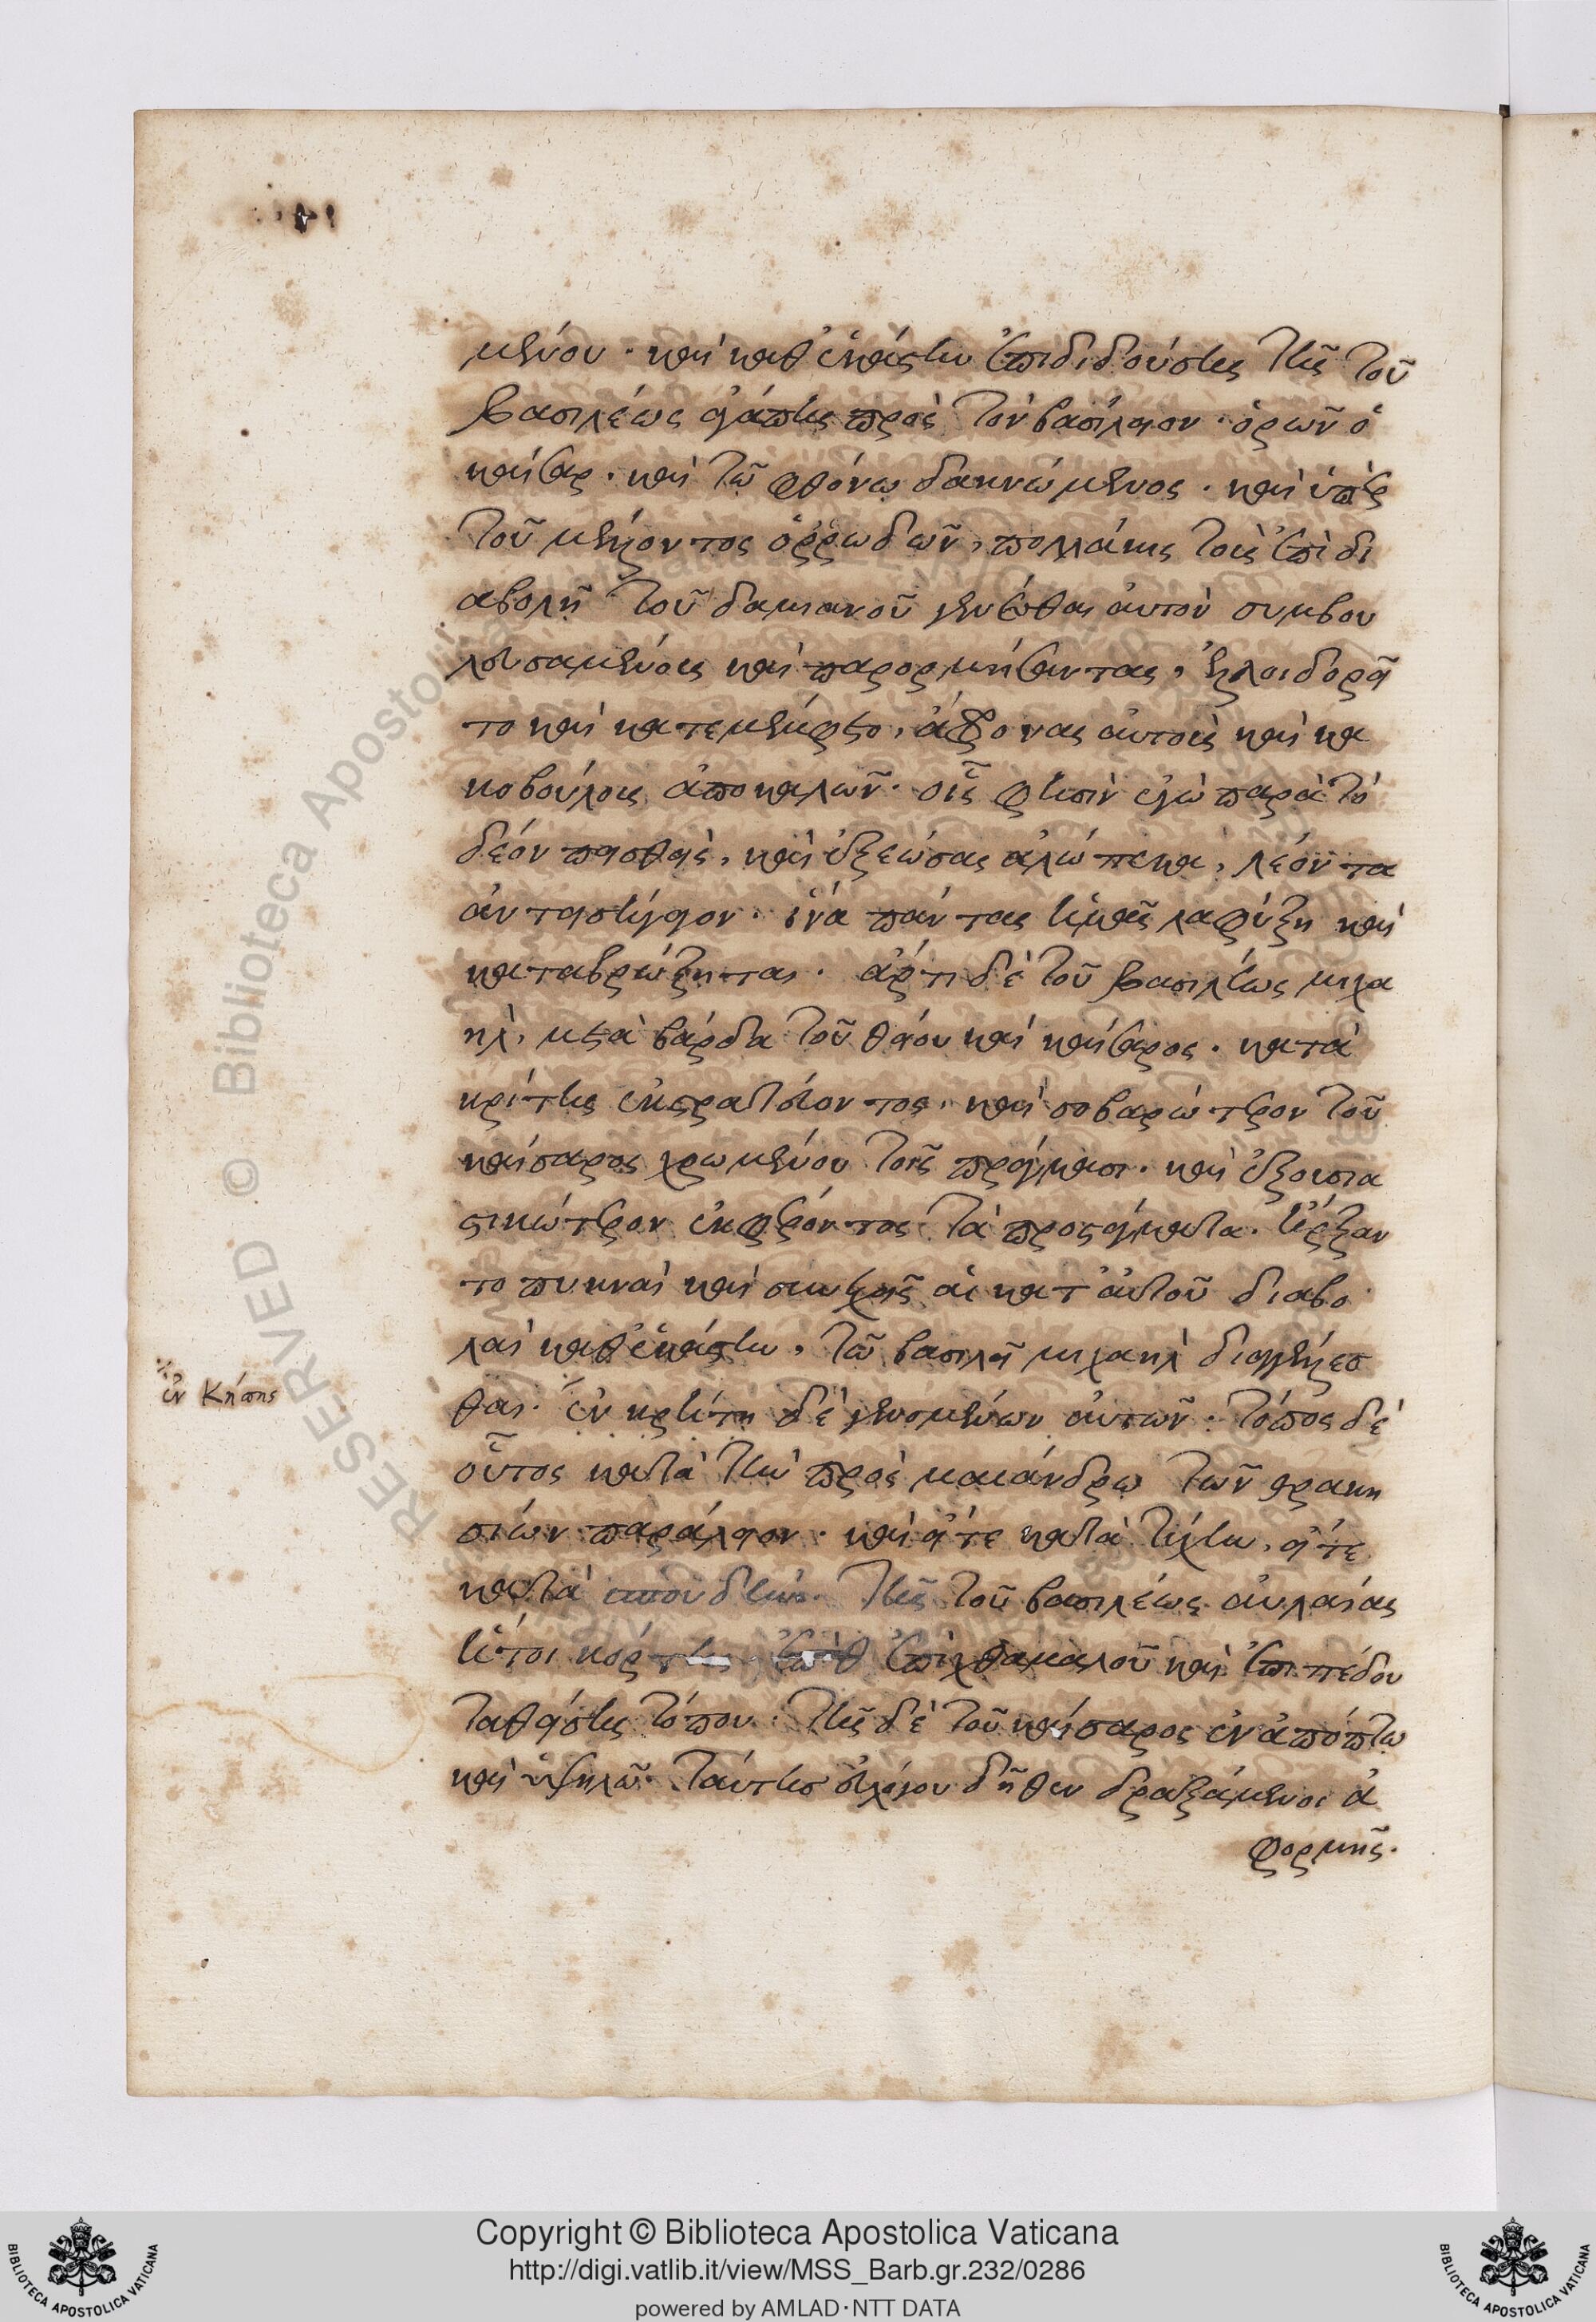 μένου · καὶ καθ ἑκάστην ἐπιδιδούσης τῆς τοῦ
βασιλέως ἀγάπης πρὸς τὸν βασίλειον · ὁρῶν ὁ
καῖσαρ · καὶ τῶ φθόνω δακνώμενος · καὶ ὑπὲρ
τοῦ μέλλοντος ὀρρωδῶν, πολλάκις τοὺς ἐπὶ δι
αβολῆ τοῦ δαμιανοῦ γενέσθαι αὐτὸν συμβου
λευσαμένους καὶ παρορμήσαντας, ἐλοιδορεῖ
το καὶ κατεμέμφετο, ἄφρονας αὐτοὺς καὶ κα
κοβούλους ἀποκαλῶν · οἷς φησὶν ἐγὼ παρὰ τὸ
δέον πεισθεὶς, καὶ ἐξεώσας ἀλώπεκα, λέοντα
ἀντεισήγαγον · ἵνα πάντας ἡμᾶς λαφύξη καὶ
καταβρώξηται · ἄρτι δὲ τοῦ βασιλέως μιχα
ηλ, μετὰ βάρδα τοῦ θείου καὶ καίσαρος · κατὰ
κρίτης ἐκστρατεύοντος, καὶ σοβαρώτερον τοῦ
καίσαρος χρωμένου τοῖς πράγμασι · καὶ ἐξουσια
στικώτερον ἐκφέροντος τὰ προστάγματα · ἤρξαν
το πυκναὶ καὶ συνεχεῖς αἱ κατ αὐτοῦ διαβο
λαὶ καθ ἑκάστην, τῶ βασιλεῖ μιχαηλ διαγγέλλεσ
θαι · ἐν κρήτη δὲ γενομένων αὐτῶν · τόπος δὲ
οὗτος κατὰ τὴν πρὸς μαιάνδρω τῶν θρακη
σιων παράλιον · καὶ εἴτε κατὰ τύχην, εἴτε
κατὰ σπουδὴν · τῆς τοῦ βασιλέως αὐλαίας
ἤτοι κόρτης ἐπὶ χθαμαλοῦ καὶ ἐπιπέδου
ταθείσης τόπου · τῆς δὲ τοῦ καίσαρος ἐν ἀπόπτω
καὶ ὑψηλῶ · ταύτης εὐλόγου δῆθεν δραξάμενοι ἀ
φορμῆς ·
ἐν Κήποις
Copyright © Biblioteca Apostolica Vaticana
http://digi.vatlib.it/view/MSS_Barb.gr.232/0286
powered by AMLAD·NTT DATA
BIBLIOTECA APOSTOLICA VATICANA
BIBLIOTECA APOSTOLICA VATICANA